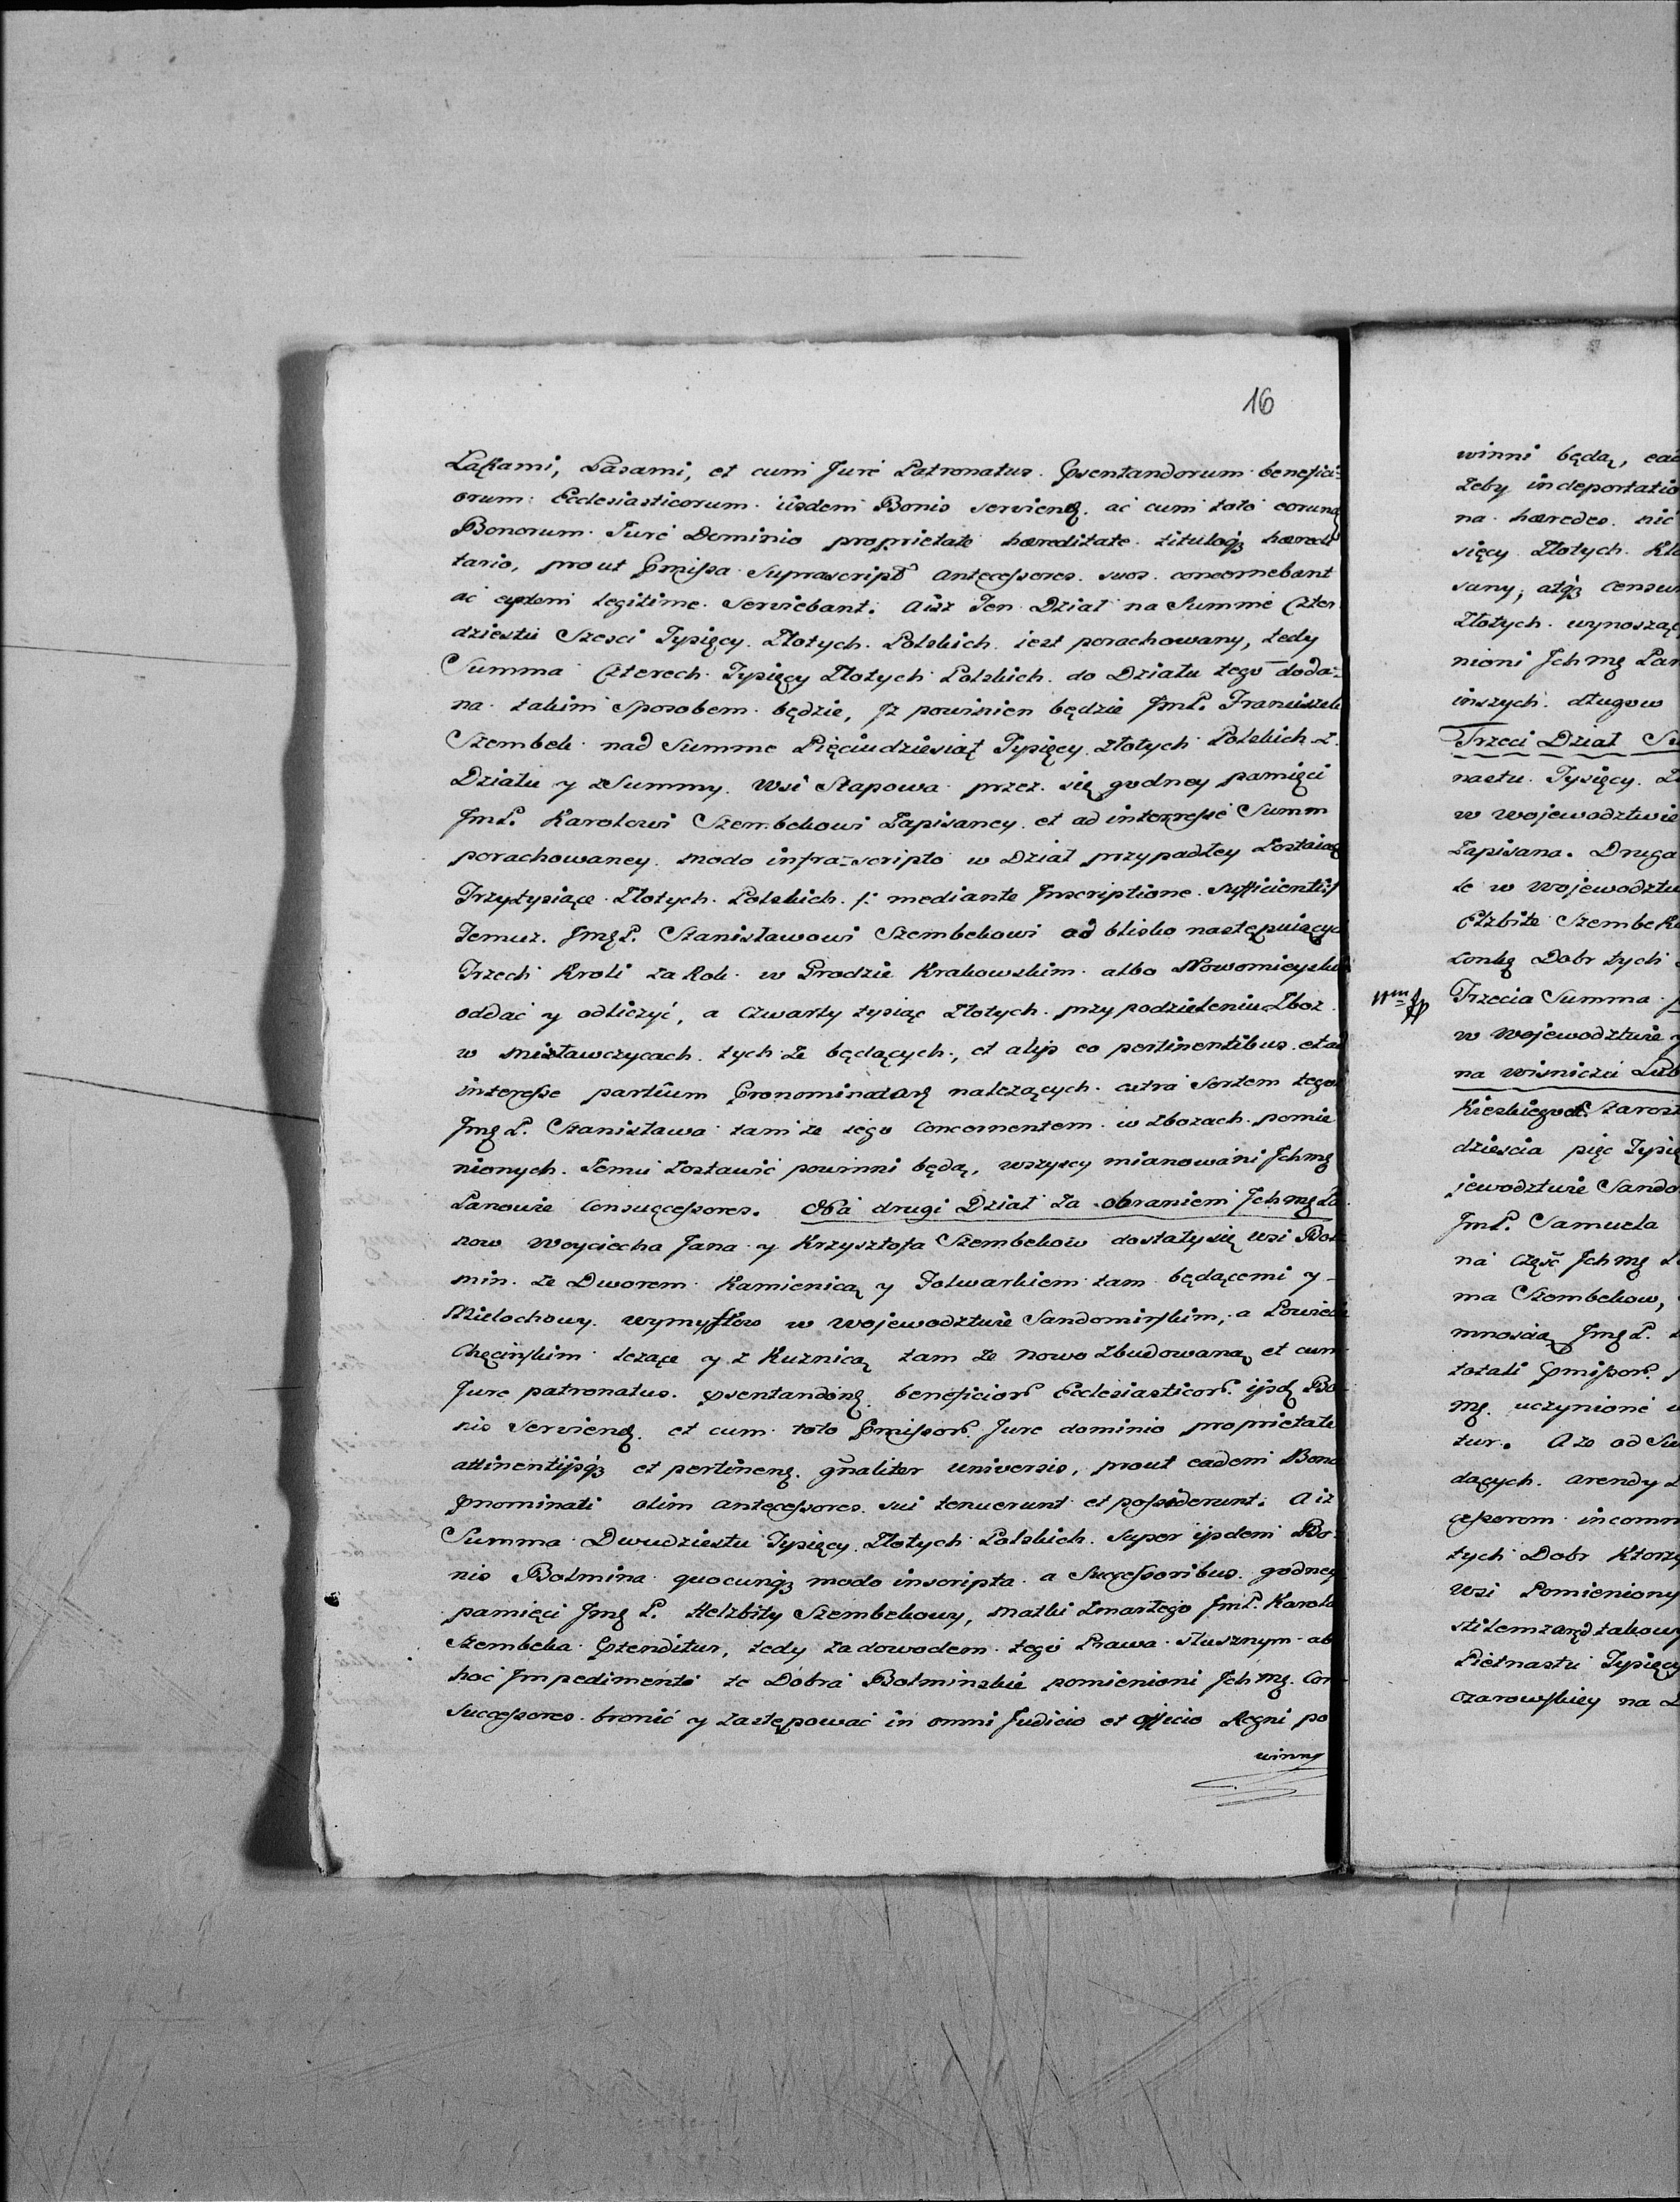 16
Łąkami, Lasami, et cum Jure Patronatus. Psentandorum benefici=
orum Ecclesiasticorum iisdem Bonis servienq. ac cum toto eorunq
Bonorum Jure Dominio proprietate haereditate tituloq3 haeredi
tario, prout Pmissa Suprascript antecessores suos concernebant
ac eysdem legitime serviebant. Aisz Ten Dział na Summe Czter
dziestu Szesci Tysięcy Złotych Polskich iest porachowany, tedy
Summa Czterech Tysięcy Złotych Polskich do Działu tego doda=
na takim sposobem będzie, Jz powinien będzie JmP. Franciszek
Szembek nad Summe Pięciudziesiąt Tysięcy Złotych Polskich z
Działu y z Summy Wsi Słapowa przez się godney pamięci
JmP. Karolowi Szembekowi Zapisaney et ad interesse Summ
porachowaney modo infra=scripto w Dział przypadłey Zostaiąc
Trzytysiące Złotych Polskich /: mediante Inscriptione sufficienti:/
Temuz Jmę P. Stanisławowi Szembekowi od blisko następuiących
Trzech Kroli za Rok w Grodzie Krakowskim albo Nowomieysk
oddać y odliczyć, a czwarty tysiąc Złotych przy podzieleniu Zboz
w Mistawczycach tych ze będących, et alijs eo pertinentibus et ad
interesse partium Pronominatarq należących cutra Sortem tego
Jmę P. Stanisława tamże iego concernentem w zbozach pomie
nionych Temu zostawić powinni będą, wszyscy mianowani Jchmę
Panowie Consuccessores. Na drugi Dział Za obraniem Jchmę Pa
now Woyciecha Jana y Krzysztofa Szembekow dostały się wsi Bol
min ze Dworem Kamienicą y Folwarkiem tam będącemi y
Mielochowy wymysłow w Wojewodztwie Sandomirskim, a Powiecie
Chęcińskim leżące y z Kuznicą tam ze nowo zbudowaną et cum
Jure patronatus psentandorq beneficior Ecclesiasticor ijsdq Bo
nis servienq. et cum toto Pmissor. Jure dominio proprietate
attinentijsq3 et pertinenq. gnaliter universis, prout eadem Bona
Pnominati olim antecessores sui tenuerunt et possiderunt. A iz
Summa Dwudziestu Tysięcy Złotych Polskich super ijsdem Bo=
nis Bolmina quocunq3 modo inscripta a Successoribus godney
pamięci Jmę P. Helzbity Szembekowy, matki zmarłego JmP. Karola
Szembeka Ptenditur, tedy za dowodem tego Prawa słusznym ab
hoc Impedimento te Dobra Bolminskie pomienioni Jchmę. Con
successores bronić y zastępować in omni Judicio et officio Regni po
winny
winni będą, ead
zeby indeportatio
na haeredes nic
sięcy Złotych
sany, atq3 censu
Złotych wynosząc
nioni Jchmę Pan
inszych długow
Trzeci Dział Su
nastu Tysięcy
w Wojewodztwie
Zapisana. Druga
te w Wojewodztw
Elzbite Szembek
Dobr tych
Trzecia Summa
w Wojewodztwie
na Wisniczu Lub
dziescia pięc Tysię
jewodztwie Sando
JmP. Samuela
na część Jchmę
ma Szembekow,
mnością Jmę P.
totali Pmissor.
mę. uczynione
tur. A ze od Su
dących arendy
cessorom incomm
tych Dobr Ktorzy
wsi Pomieniony
Pietnastu Tysięcy
czarowskiey na